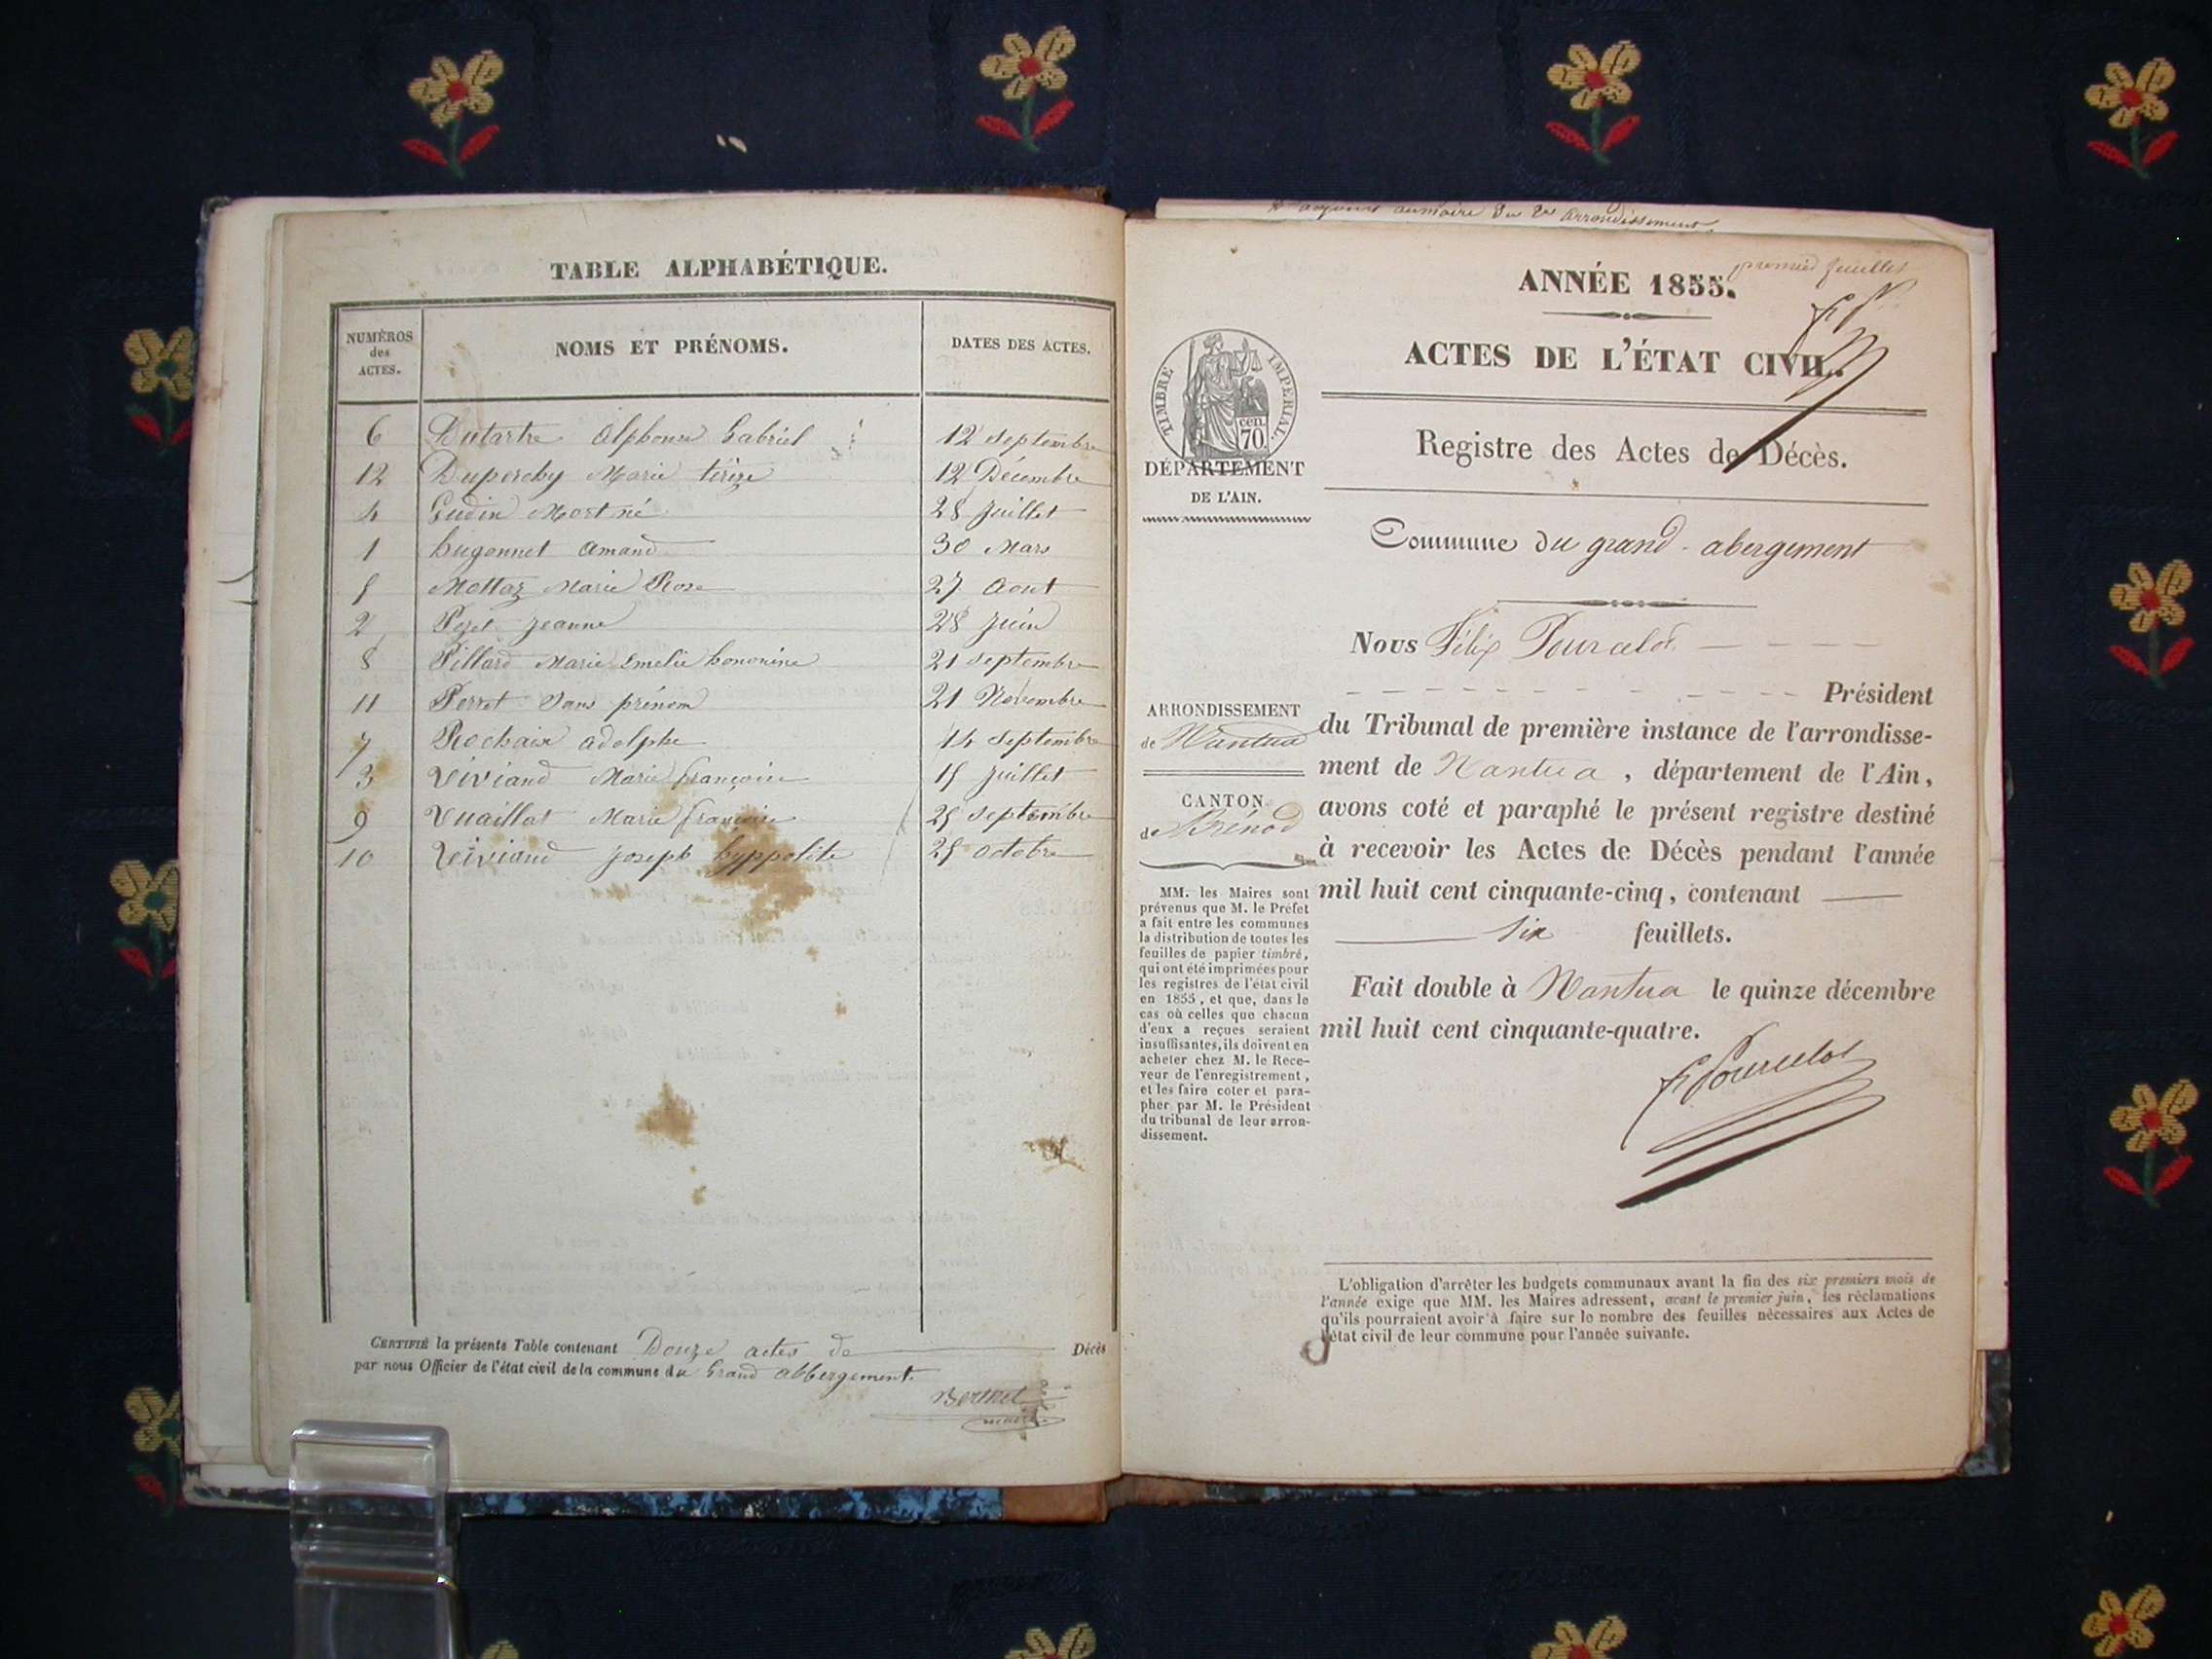 TABLE ALPHABÉTIQUE.
NUMÉROS des ACTES. NOMS ET PRÉNOMS. DATES DES ACTES.
6 Dutartre Alphonse Gabriel 12 Septembre
12 Duperchy Marie térèze 12 Décembre
4 Gudin Mort né 28 Juillet
1 hugonnet Amand 30 Mars
5 Mottaz Marie Rose 27 Aout
2 Pezet Jeanne 28 Juin
8 Pillard Marie Emelie honorine 21 Septembre
11 Perret Sans prénom 21 Novembre
7 Rochaix Adolphe 14 Septembre
3 Viviand Marie françoise 15 Juillet
9 Vuaillat Marie françoise 25 Septembre
10 Viviand Joseph hyppolite 25 Octobre
CERTIFIÉ la présente Table contenant Douze actes de Décès
par nous Officier de l'état civil de la commune du Grand Abbergement.
Berthet
maire
adjoint au maire du 2e Arrondissement
premier feuillet
ANNÉE 1855.
ACTES DE L'ÉTAT CIVIL.
TIMBRE IMPÉRIAL.
cen. 70
DÉPARTEMENT
DE L'AIN.
Registre des Actes de Décès.
Commune du grand-abergement
Nous Félix Pourcelot
Président
ARRONDISSEMENT
de Nantua
CANTON
de Brénod
du Tribunal de première instance de l'arrondisse-
ment de Nantua, département de l'Ain,
avons coté et paraphé le présent registre destiné
à recevoir les Actes de Décès pendant l'année
mil huit cent cinquante-cinq, contenant
six feuillets.
Fait double à Nantua le quinze décembre
mil huit cent cinquante-quatre.
F. Pourcelot
MM. les Maires sont
prévenus que M. le Préfet
a fait entre les communes
la distribution de toutes les
feuilles de papier timbré,
qui ont été imprimées pour
les registres de l'état civil
en 1855, et que, dans le
cas où celles que chacun
d'eux a reçues seraient
insuffisantes, ils doivent en
acheter chez M. le Rece-
veur de l'enregistrement,
et les faire coter et para-
pher par M. le Président
du tribunal de leur arron-
dissement.
L'obligation d'arrêter les budgets communaux avant la fin des six premiers mois de
l'année exige que MM. les Maires adressent, avant le premier juin, les réclamations
qu'ils pourraient avoir à faire sur le nombre des feuilles nécessaires aux Actes de
l'état civil de leur commune pour l'année suivante.